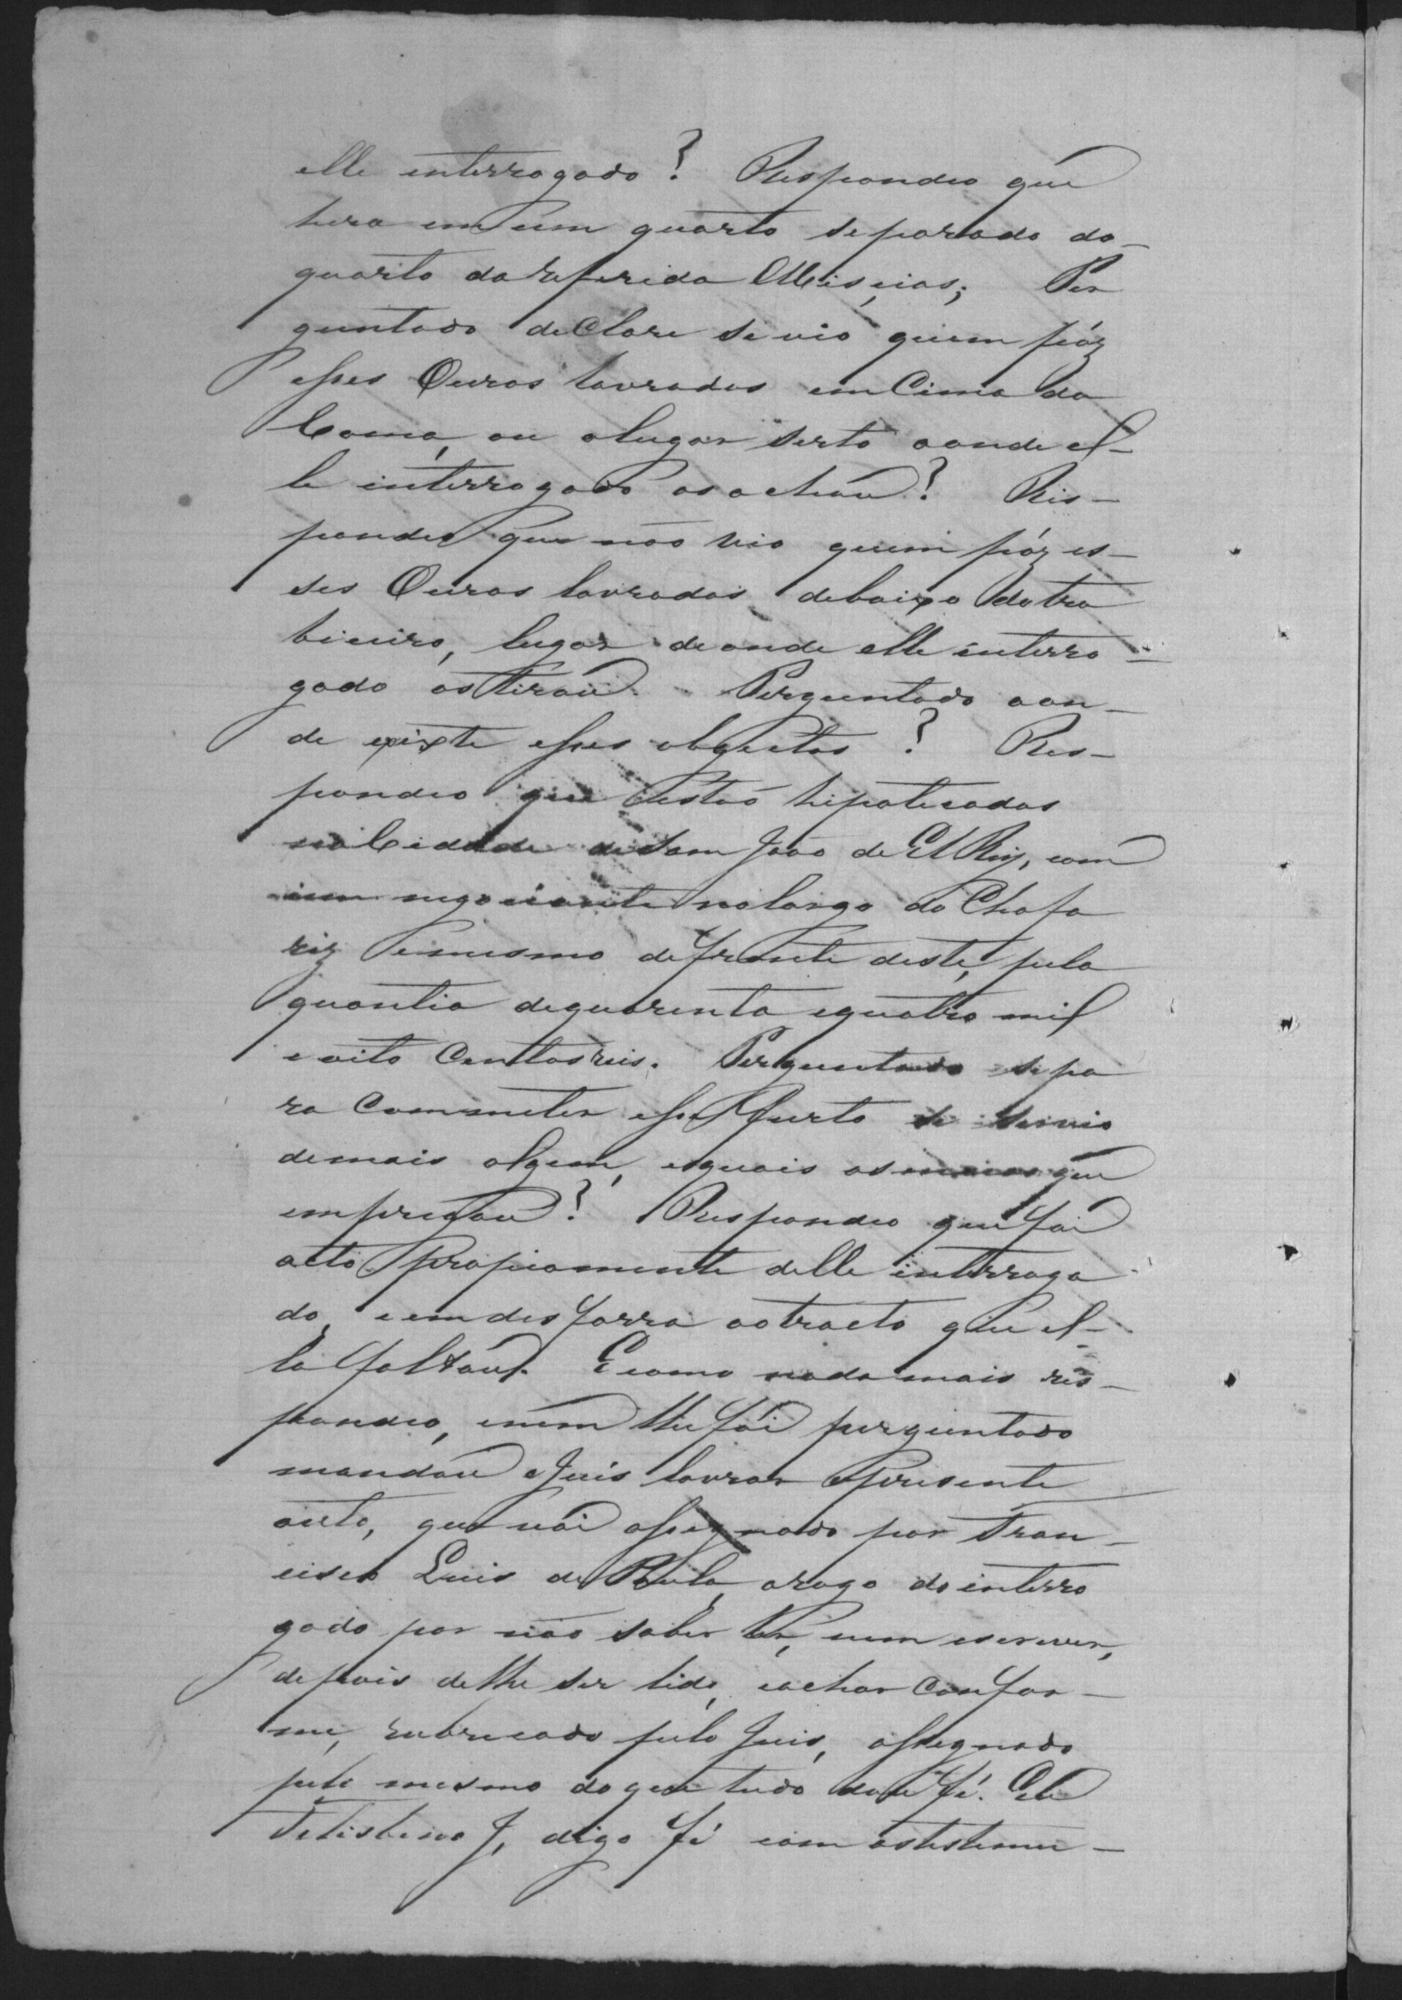 elle interrogado? Respondeo que
hera em um quarto separado do
quarto da referida Messias; Per
guntado declare se vio quem pôz
esses Ouros lavrados em Cima da
Cama, ou o lugar serto aonde el-
le interrogado os achou? Res-
pondeo que não vio quem pôz es-
ses Ouros lavrados debaixo do tra
viceiro, lugar de onde elle interro
gado os tirou. Perguntado aon-
de existe esses obgectos? Res-
pondeo que estão hipotecados
na Cidade de Sam João de El Rey, com
um negociante no largo do Chafa
riz e mesmo defronte deste, pela
quantia de quarenta e quatro mil
e oito Centos reis. Perguntado se pa
ra Commeter esse furto se servio
de mais algem, e quais os meios que
empregou? Respondeo que foi
acto propriamente delle interroga
do, e em desforra ao tracto que el-
la faltou. E como nada mais res-
pondeo, e nem lhe foi perguntado
mandou o Juis lavrar o presente
auto, que vai assegnado por Fran-
cisco Luis de Paula, a rogo do interro
gado por não saber ler, nem escrever,
depois de lhe ser lido, e achar Confor-
me, rubricado pelo Juis, assegnado
pelo mesmo do que tudo dou fé. Eu
Felisbino J, digo fé com as testemu-